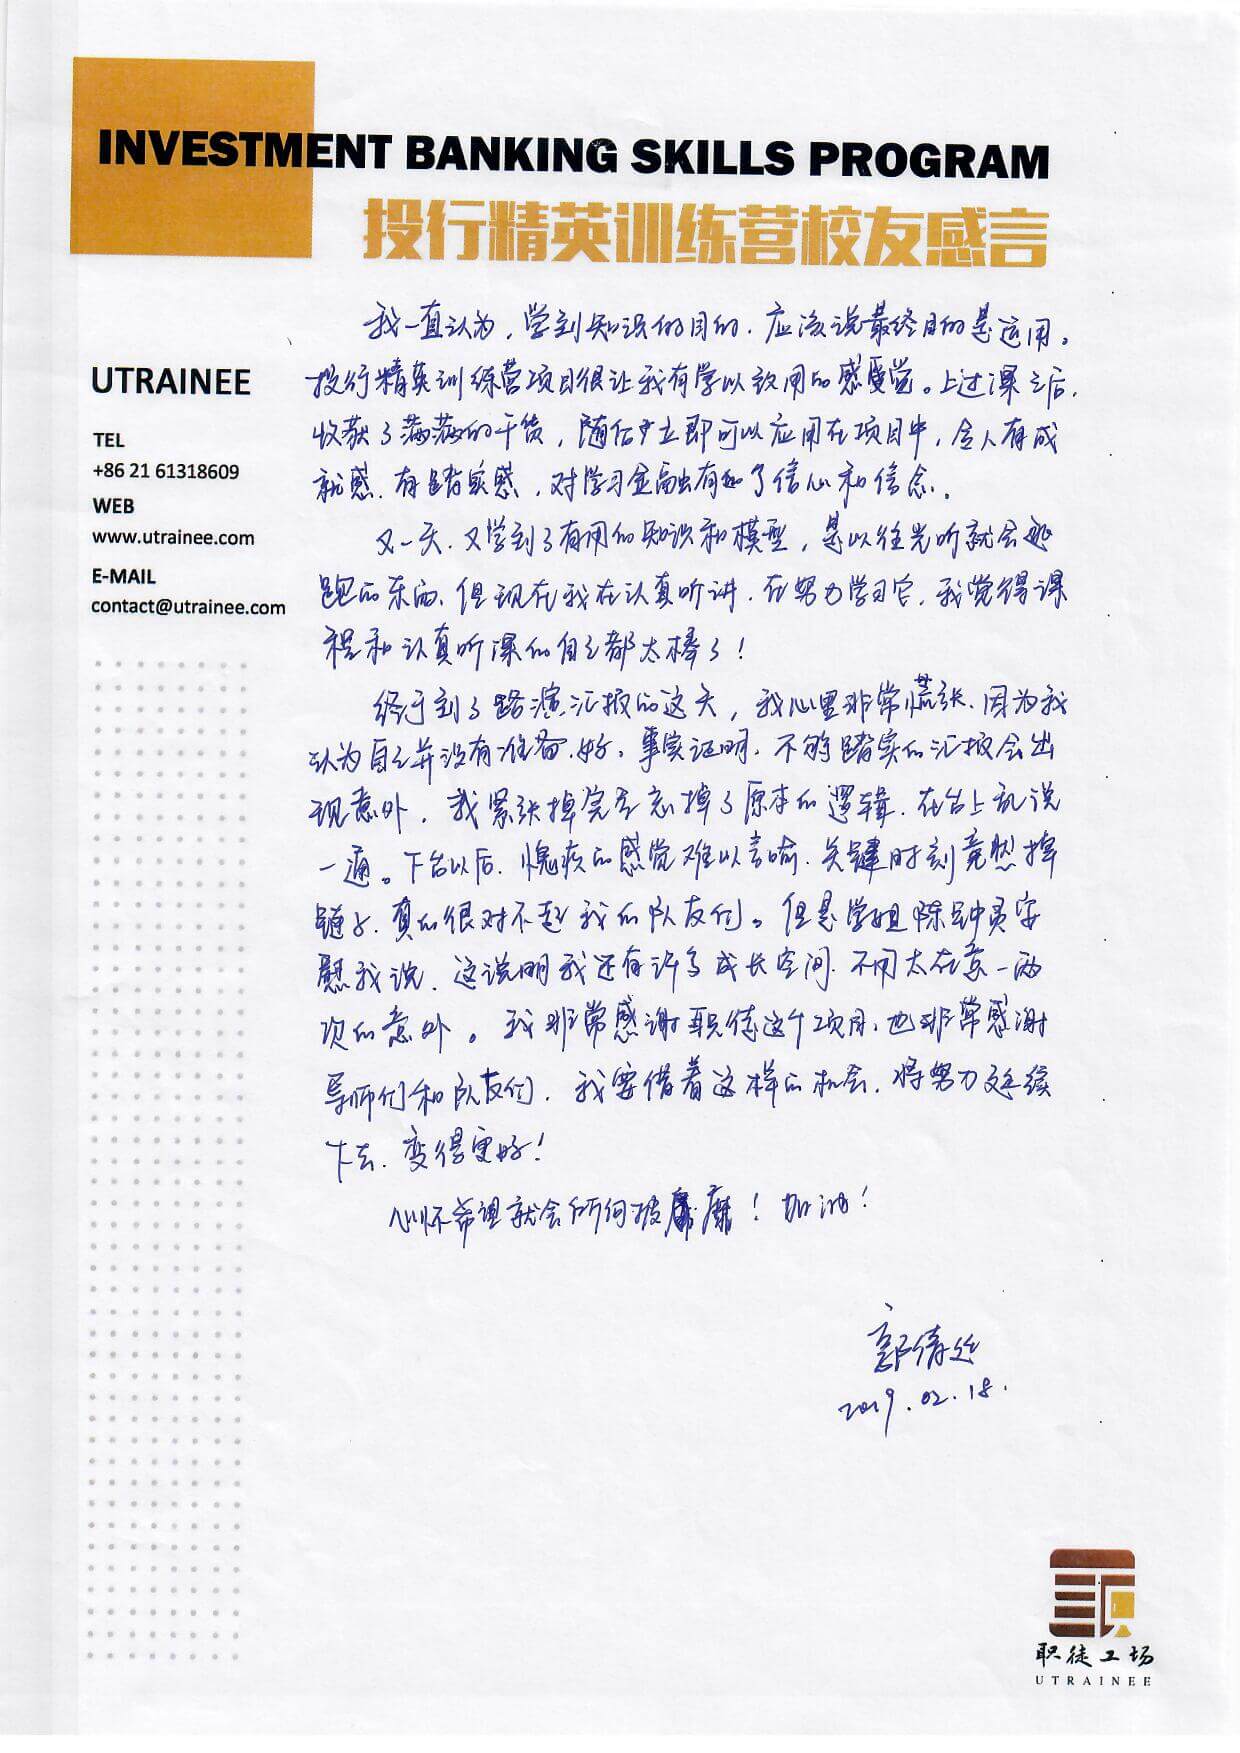 INVESTMENT BANKING SKILLS PROGRAM
投行精英训练营校友感言
UTRAINEE
TEL
+86 21 61318609
WEB
www.utrainee.com
E-MAIL
contact@utrainee.com
我一直认为，学到知识的目的，应该说最终目的是运用。
投行精英训练营项目很让我有学以致用的感觉。上过课之后，
收获了满满的干货，随后立即可以应用在项目中，令人有成
就感、有踏实感，对学习金融有了信心和信念。
又一天，又学到了有用的知识和模型，是以往光听就会逃
跑的东西，但现在我在认真听讲，在努力学习它，我觉得课
程和认真听课的自己都太棒了！
终于到了路演汇报的这天，我心里非常慌张，因为我
认为自己并没有准备好。事实证明，不够踏实的汇报会出
现意外，我紧张掉完全忘掉了原本的逻辑，在台上乱说
一通。下台以后，愧疚的感觉难以言喻，关键时刻竟然掉
链子，真的很对不起我的队友们。但是学姐陈安
慰我说，这说明我还有许多成长空间，不用太在意一两
次的意外。我非常感谢职徒这个项目，也非常感谢
导师们和队友们，我要借着这样的机会，将努力延续
下去，变得更好！
心怀希望就会所向披靡！加油！
郭倩
2019.02.18.
职徒工场
UTRAINEE